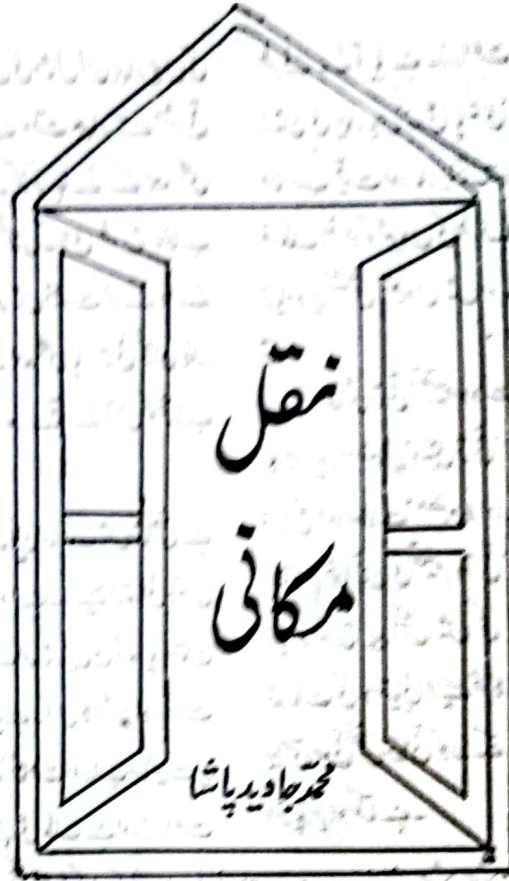 نقل
مکانی
محمد جاوید پاشا